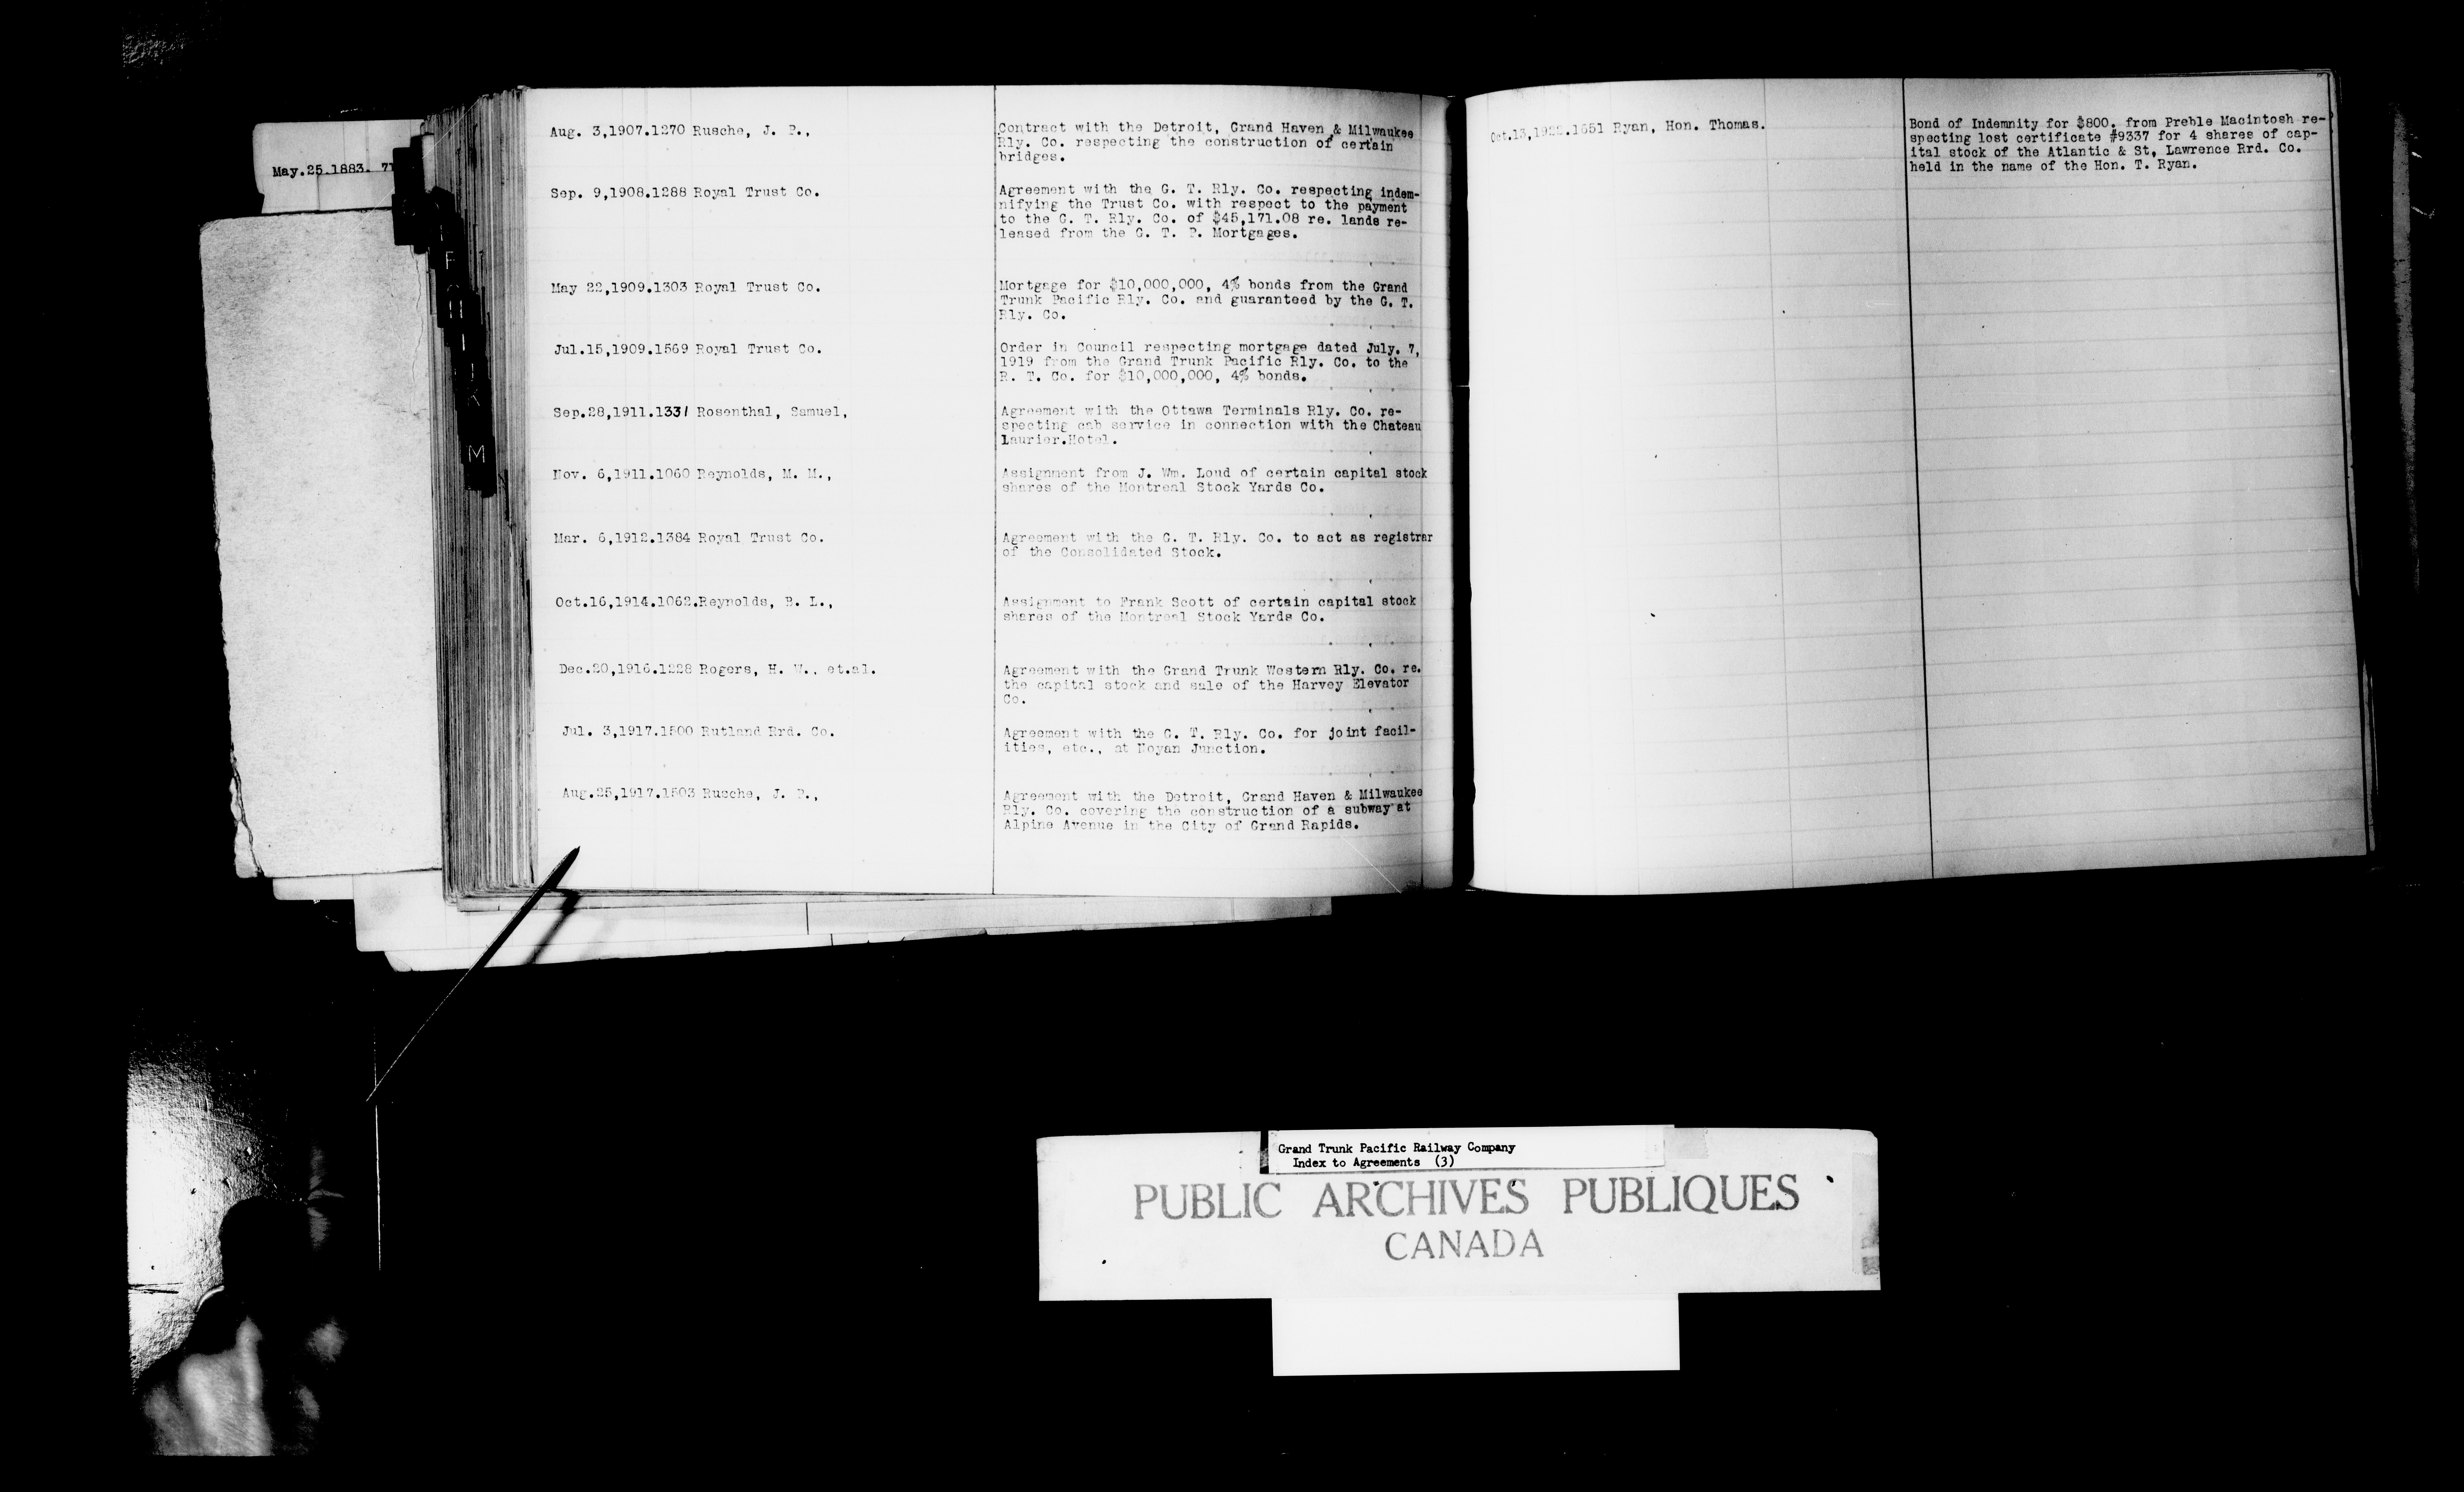 May.25.1883. 71
F
M
Aug. 3,1907.1270 Rusche, J. P.,
Contract with the Detroit, Grand Haven & Milwaukee
Rly. Co. respecting the construction of certain
bridges.
Sep. 9,1908.1288 Royal Trust Co.
Agreement with the G. T. Rly. Co. respecting indem-
nifying the Trust Co. with respect to the payment
to the G. T. Rly. Co. of $45,171.08 re. lands re-
leased from the G. T. P. Mortgages.
May 22,1909.1303 Royal Trust Co.
Mortgage for $10,000,000, 4% bonds from the Grand
Trunk Pacific Rly. Co. and guaranteed by the G. T.
Rly. Co.
Jul.15,1909.1569 Royal Trust Co.
Order in Council respecting mortgage dated July. 7,
1919 from the Grand Trunk Pacific Rly. Co. to the
R. T. Co. for $10,000,000, 4% bonds.
Sep.28,1911.1331 Rosenthal, Samuel,
Agreement with the Ottawa Terminals Rly. Co. re-
specting cab service in connection with the Chateau
Laurier.Hotel.
Nov. 6,1911.1060 Reynolds, M. M.,
Assignment from J. Wm. Loud of certain capital stock
shares of the Montreal Stock Yards Co.
Mar. 6,1912.1384 Royal Trust Co.
Agreement with the G. T. Rly. Co. to act as registrar
of the Consolidated Stock.
Oct.16,1914.1062.Reynolds, R. L.,
Assignment to Frank Scott of certain capital stock
shares of the Montreal Stock Yards Co.
Dec.20,1916.1228 Rogers, H. W., et.al.
Agreement with the Grand Trunk Western Rly. Co. re.
the capital stock and sale of the Harvey Elevator
Co.
Jul. 3,1917.1500 Rutland Rrd. Co.
Agreement with the G. T. Rly. Co. for joint facil-
ities, etc., at Noyan Junction.
Aug.25,1917.1503 Rusche, J. P.,
Agreement with the Detroit, Grand Haven & Milwaukee
Rly. Co. covering the construction of a subway at
Alpine Avenue in the City of Grand Rapids.
Oct.13,1922.1651 Ryan, Hon. Thomas.
Bond of Indemnity for $800. from Preble Macintosh re-
specting lost certificate #9337 for 4 shares of cap-
ital stock of the Atlantic & St, Lawrence Rrd. Co.
held in the name of the Hon. T. Ryan.
Grand Trunk Pacific Railway Company
Index to Agreements (3)
PUBLIC ARCHIVES PUBLIQUES
CANADA